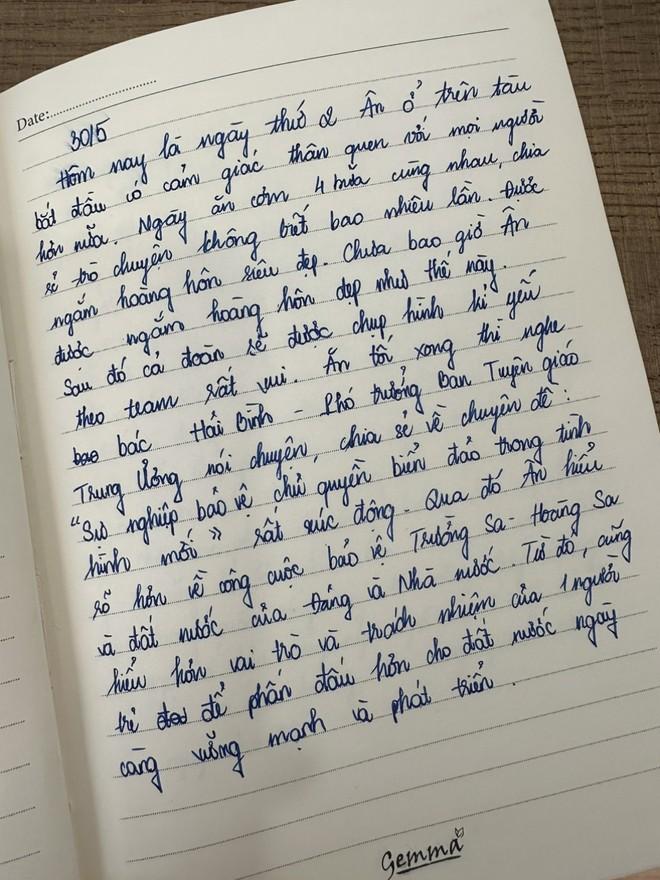 Date:
30/5
Hôm nay là ngày thứ 2 Ân ở trên tàu
bắt đầu có cảm giác thân quen với mọi người
hơn nữa. Ngày ăn cơm 4 bữa cùng nhau, chia
sẻ trò chuyện không biết bao nhiêu lần. Được
ngắm hoàng hôn siêu đẹp. Chưa bao giờ Ân
được ngắm hoàng hôn đẹp như thế này.
Sau đó cả đoàn sẽ được chụp hình kỉ yếu
theo team rất vui. Ăn tối xong thì nghe
bác Hải Bình - Phó trưởng Ban Tuyên giáo
Trung Ương nói chuyện, chia sẻ về chuyên đề:
"Sự nghiệp bảo vệ chủ quyền biển đảo trong tình
hình mới" rất xúc động. Qua đó Ân hiểu
rõ hơn về công cuộc bảo vệ Trường Sa - Hoàng Sa
và đất nước của Đảng và Nhà nước. Từ đó, cũng
hiểu hơn vai trò và trách nhiệm của 1 người
trẻ để phấn đấu hơn cho đất nước ngày
càng vững mạnh và phát triển.
Gemma